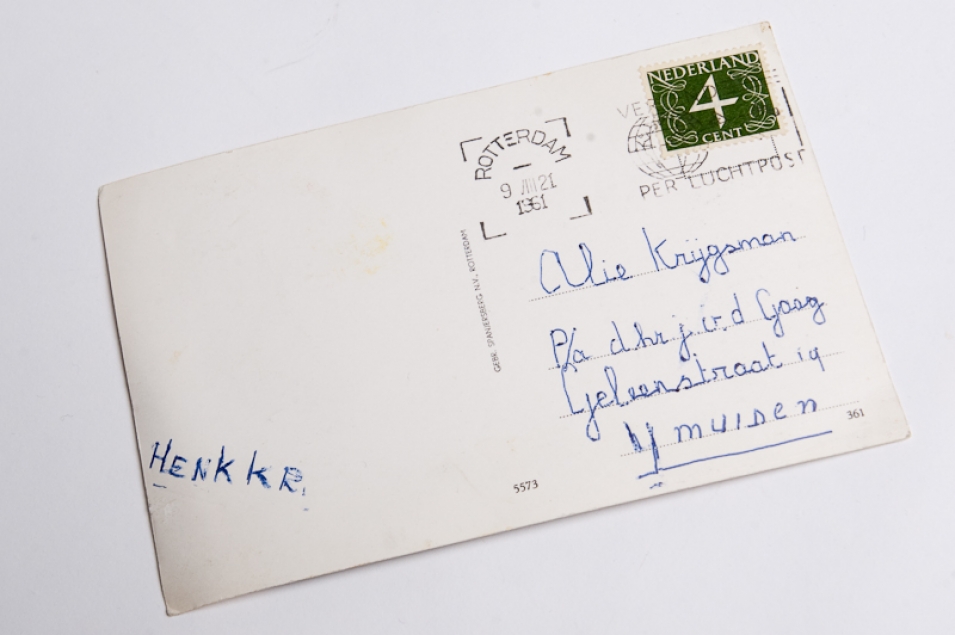 NEDERLAND
4
CENT
ROTTERDAM
1961
PER LUCHTPOST
GEBR. SPANJERSBERG N.V., ROTTERDAM
Alie Krijgsman
P/a dhr j v.d Gaag
Geleenstraat 19
Ymuiden
HENK KR.
5573
361